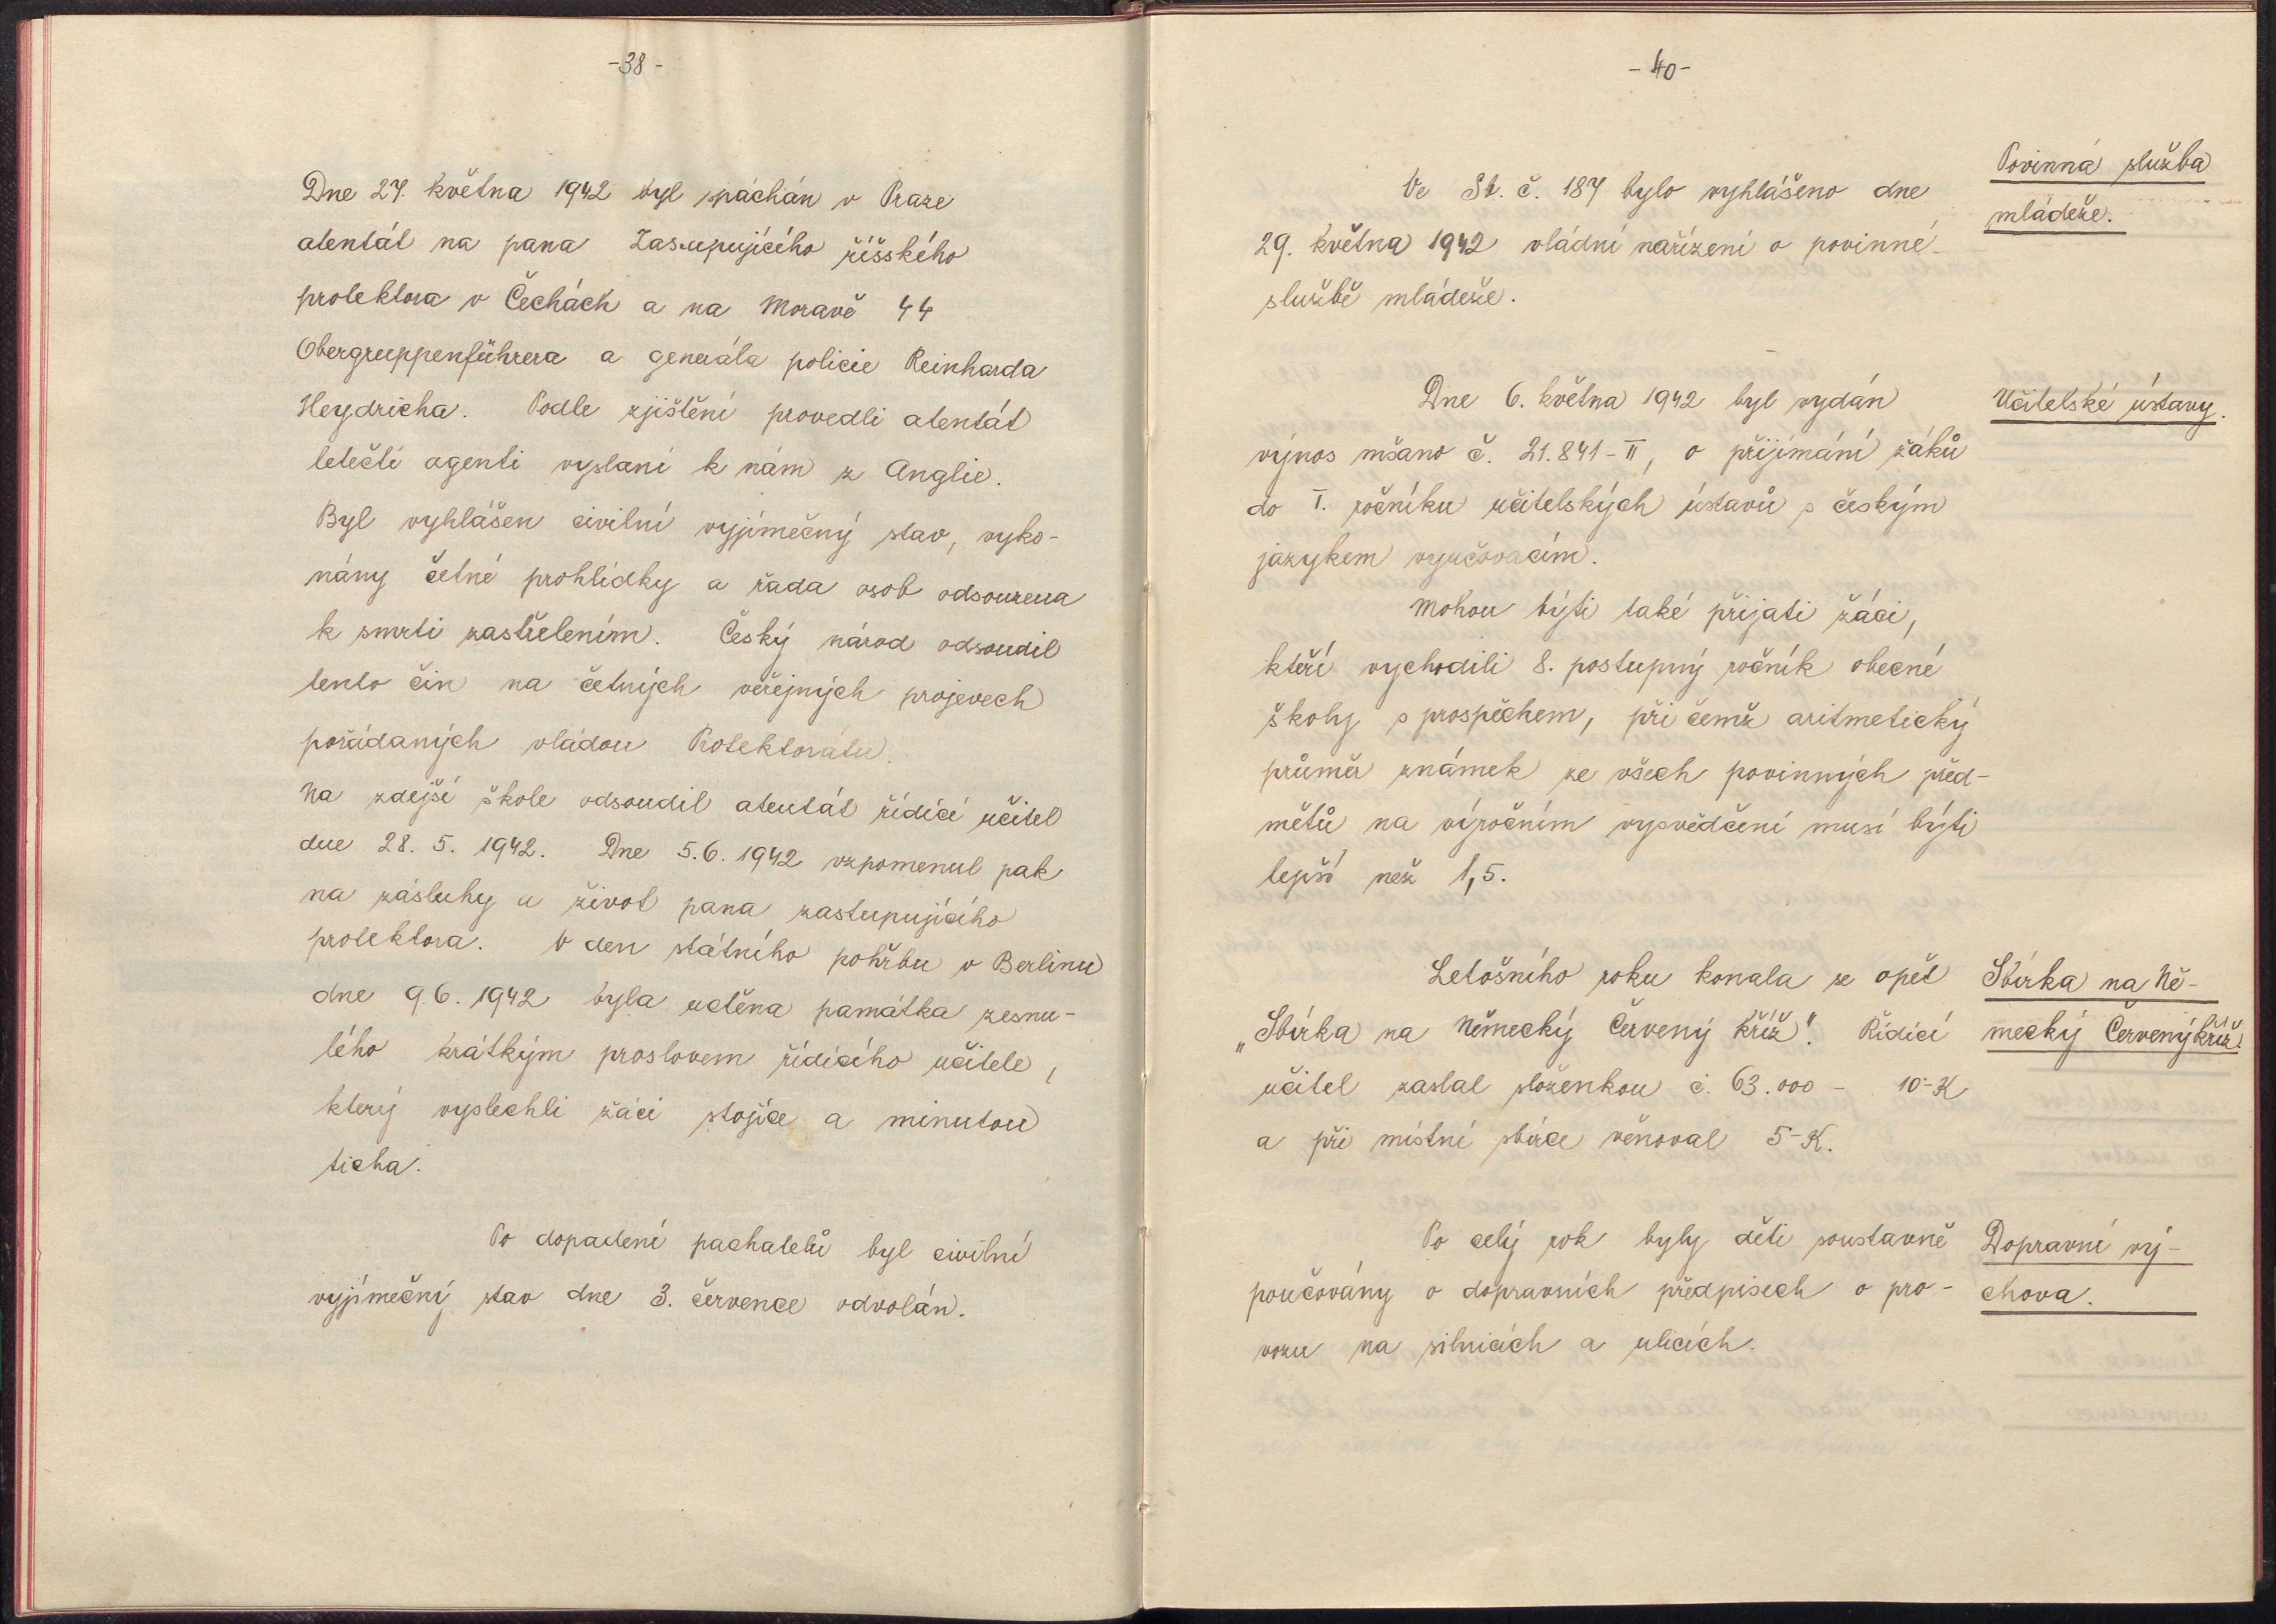 -38-
Dne 27. května 1942 byl spáchán v Praze
atentát na pana Zastupujícího říšského
protektora v Čechách a na Moravě 44
Obergruppenführera a generála policie Reinharda
Heydricha. Podle zjištění provedli atentát
letečtí agenti vyslaní k nám z Anglie.
Byl vyhlášen civilní vyjímečný stav, vyko-
nány četné prohlídky a řada osob odsouzena
k smrti zastřelením. Český národ odsoudil
tento čin na četných veřejných projevech
pořádaných vládou Protektorátu.
Na zdejší škole odsoudil atentát řídící učitel
dne 28. 5. 1942. Dne 5. 6. 1942 vzpomenul pak
na zásluhy a život pana zastupujícího
protektora. V den státního pohřbu v Berlinu
dne 9. 6. 1942 byla uctěna památka zesnu-
lého krátkým proslovem řídícího učitele,
který vyslechli žáci stojíce a minutou
ticha.
Po dopadení pachatelů byl civilní
vyjímečný stav dne 3. července odvolán.
-40-
Povinná služba
mládeže.
Ve Sb. č. 187 bylo vyhlášeno dne
29. května 1942 vládní nařízení o povinné
službě mládeže.
Učitelské ústavy.
Dne 6. května 1942 byl vydán
výnos mšano č. 21.841-II, o přijímání žáků
do I. ročníku učitelských ústavů s českým
jazykem vyučovacím.
Mohou býti také přijati žáci,
kteří vychodili 8. postupný ročník obecné
školy s prospěchem, při čemž aritmetický
průměr známek ze všech povinných před-
mětů na výročním vysvědčení musí býti
lepší než 1,5.
Sbírka na Ně-
mecký Červený kříž.
Letošního roku konala se opět
„Sbírka na Německý Červený kříž". Řídící
učitel zaslal složenkou č. 63.000 - 10-K
a při místní sbírce věnoval 5-K.
Dopravní vý-
chova.
Po celý rok byly děti soustavně
poučovány o dopravních předpisech o pro-
vozu na silnicích a ulicích.